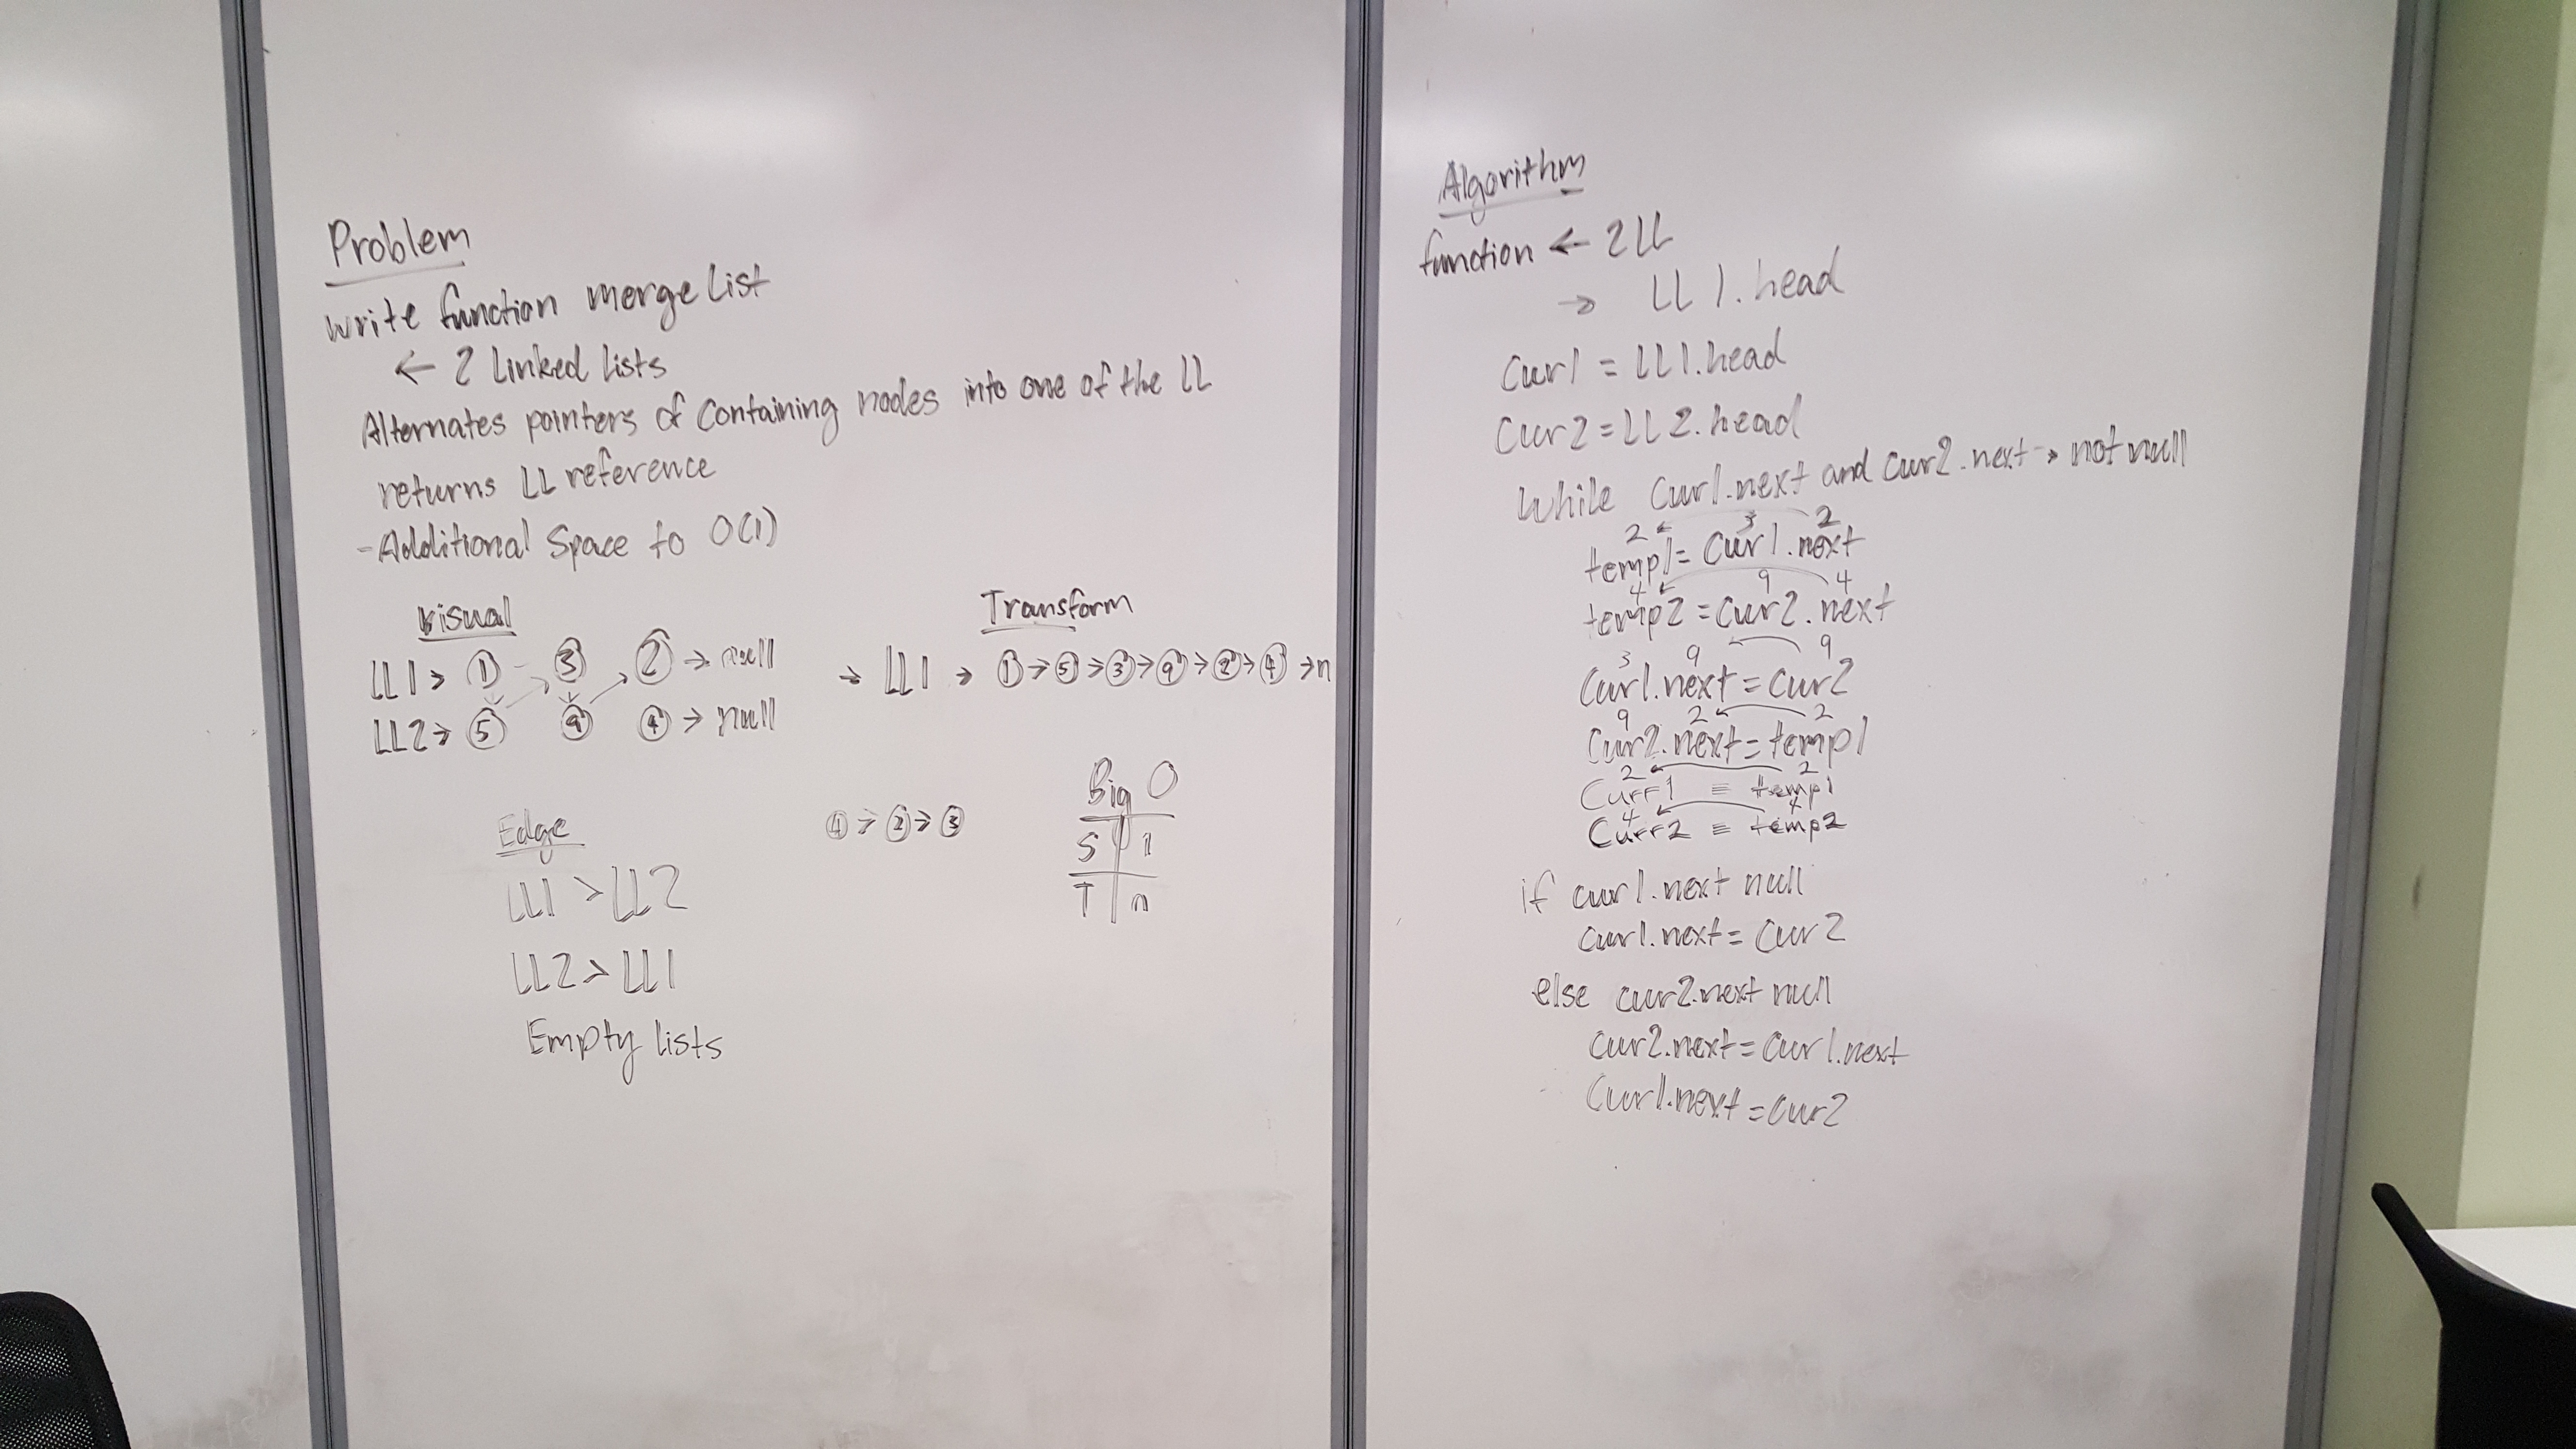 Problem
write function merge list
← 2 Linked lists
Alternates pointers of containing nodes into one of the LL
returns LL reference
- Additional Space to O(1)
Visual
LL1 > 1 3 2 → null
LL2 > 5 9 4 → null
Transform
→ LL1 → 1 > 5 > 3 > 9 > 2 > 4 > n
Edge
LL1 > LL2
LL2 > LL1
Empty lists
> 2 > 3
Big O
S 1
T n
Algorithm
function ← 2 LL
→ LL1.head
Cur1 = LL1.head
Cur2 = LL2.head
While Cur1.next and cur2.next → not null
2 3 2
temp1 = Cur1.next
4 9 4
temp2 = Cur2.next
3 9 9
Cur1.next = Cur2
9 2 2
Cur2.next = temp1
2 2
Curr1 = temp1
4 4
Curr2 = temp2
if cur1.next null
cur1.next = Cur2
else cur2.next null
Cur2.next = Cur1.next
Cur1.next = Cur2